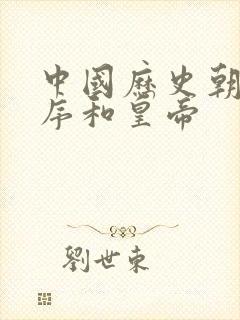 中國歷史朝
序和皇帝
劉世東